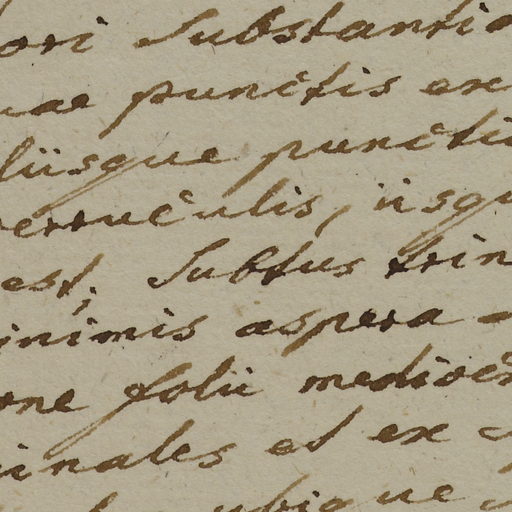 ori Substantia
uae punctis ex
liisque puncti
verruculis, iisqu
est, Subtus trin
inimis aspera
one folii medioc
inales et ex
ubique